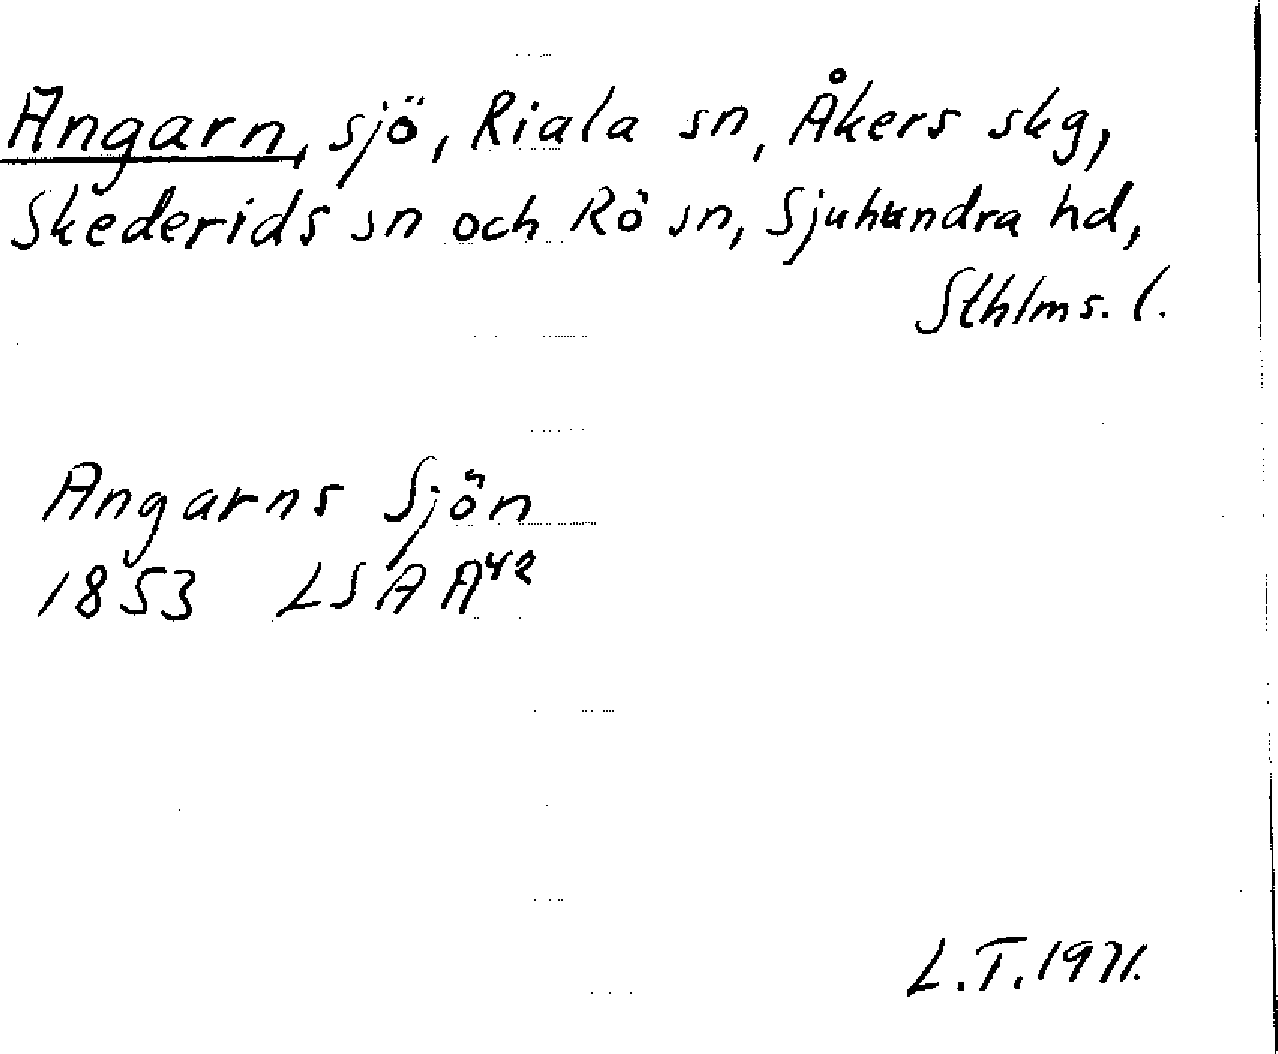 Angarn, sjö, Riala sn, Åkers skg,
Skederids sn och Rö sn, Sjuhundra hd,
Sthlms. l.
Angarns Sjön
1853 LSA A42
L.T. 1971.